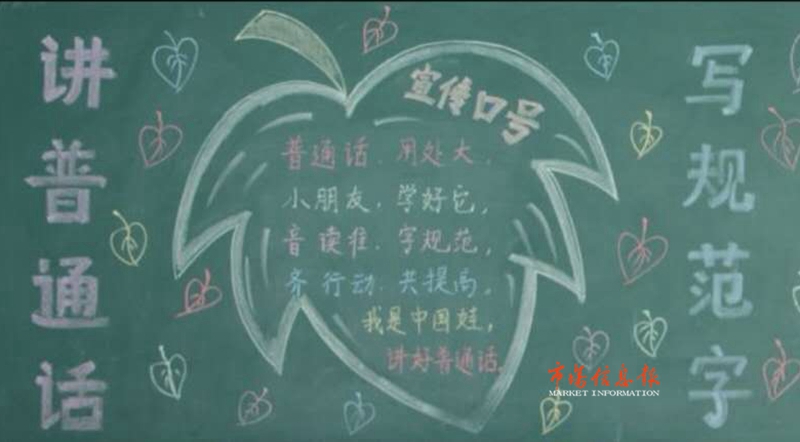 讲普通话
宣传口号
普通话.用处大.
小朋友.学好它,
音读准.字规范,
齐行动.共提高,
我是中国娃,
讲好普通话.
写规范字
市场信息报
MARKET INFORMATION